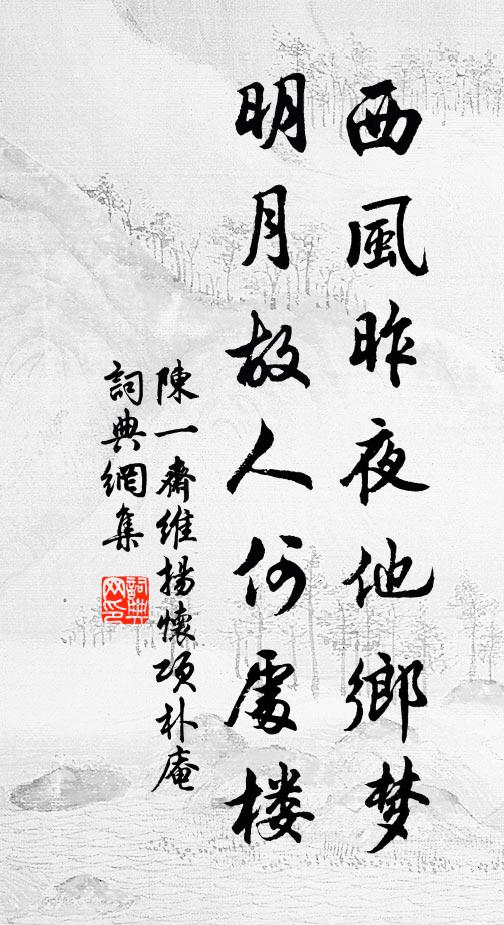 西風昨夜他鄉梦
明月故人何處楼
陳一齋維揚懷項朴庵
詞典網集
詞典网印